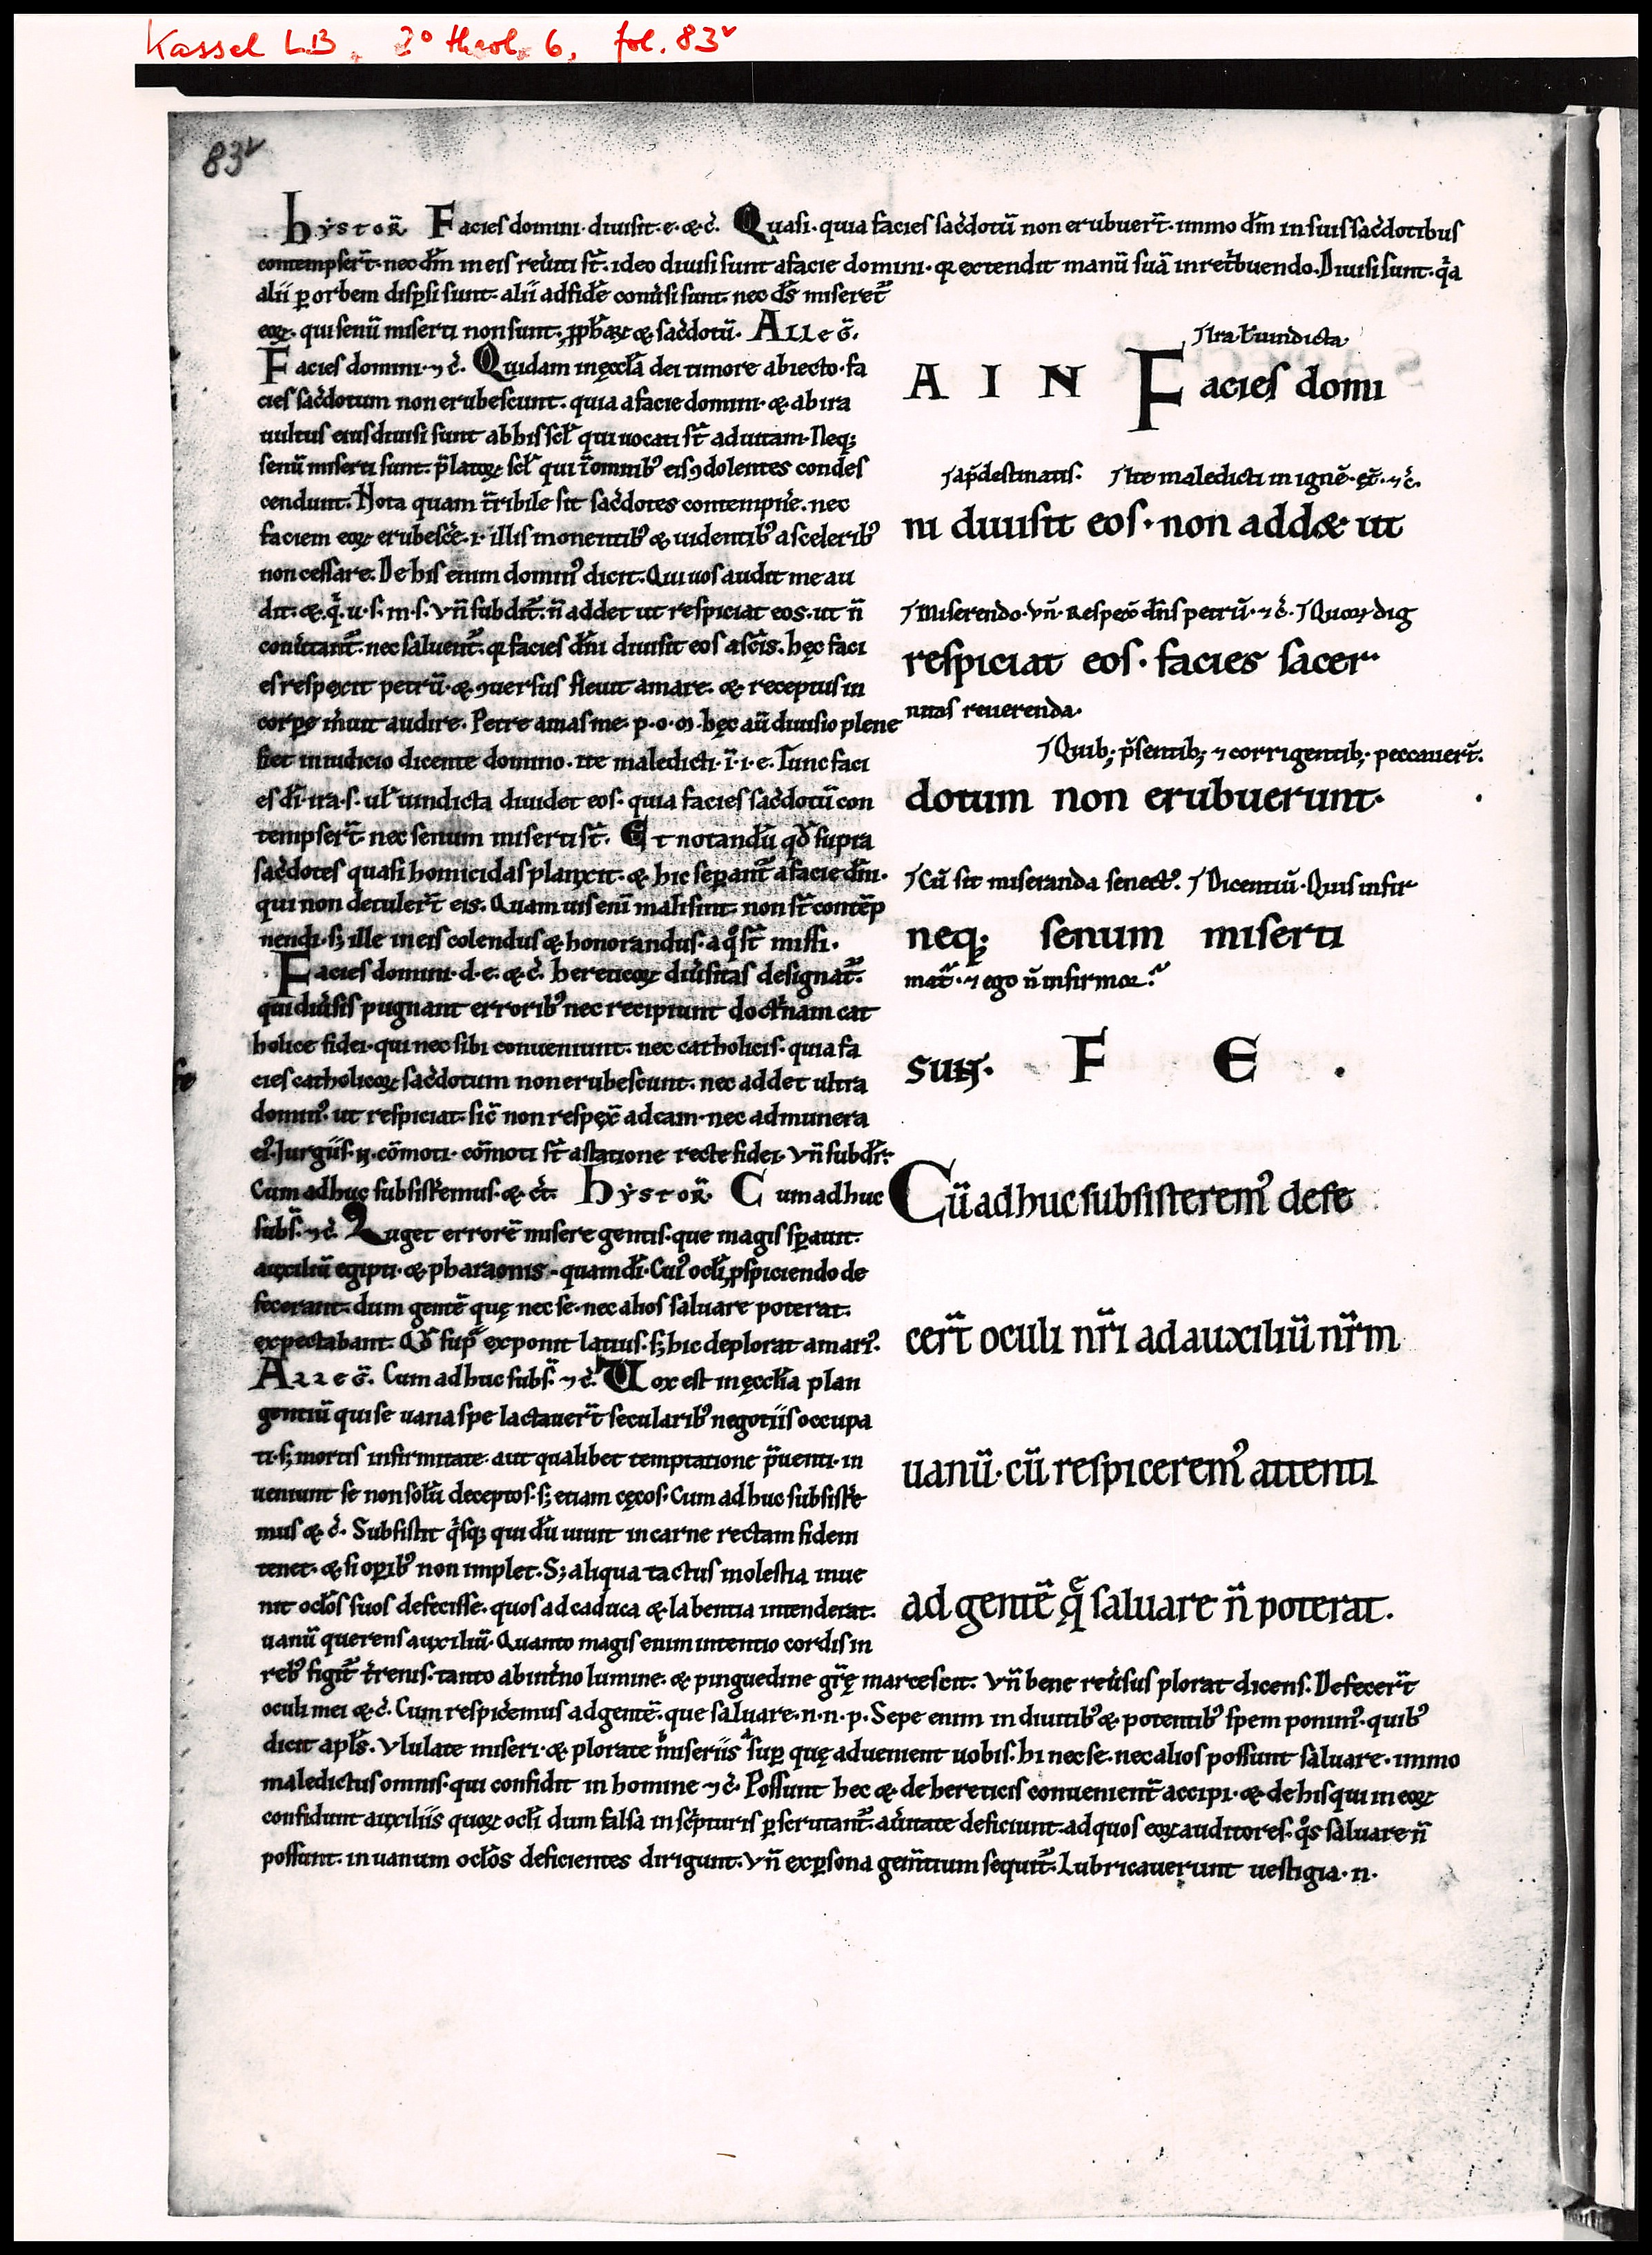 Kassel LB, 2° theol. 6, fol. 83v
83v
hystor̄. Facies domini diuisit·e·&·c̄. Quasi·quia facies sac̄dotū non erubuer̄t·immo dn̄m in suis sac̄dotibus
contempser̄t·nec dn̄m in eis reu̓iti st̄·ideo diuisi sunt a facie domini· qꝛ extendit manū suā in ret̓buendo. Diuisi sunt·q̓a
alii ꝑ orbem disꝑsi sunt·alii ad fidē conu̓si sunt·nec ds̄ miseret᷒
eoꝝ·qui senū miserti non sunt·ꝓph̄aꝝ & sac̄dotū. Alleḡ.
Facies domini·⁊ c̄. Quidam in ęccl̄a dei timore abiecto·fa
cies sac̄dotum non erubescunt·quia a facie domini·& ab ira
uultus eius diuisi sunt ab his scl̄ qui uocati st̄ ad uitam·Neq;
senū miserti sunt·p̄latoꝝ scl̄ qui ī omnibꝰ eis ꝯdolentes condes
cendunt. Nota quam t̄ribile sit sac̄dotes contempn̄e·nec
faciem eoꝝ erubesc̄e·i·illis monentibꝰ & uidentibꝰ a sceleribꝰ
non cessare. De his enim dominꝰ dicit. Qui uos audit me au
dit·&·q̓·u·s·m·s·Vn̄ subdit᷒·n̄ addet ut respiciat eos·ut n̄
conu̓tant᷒·nec saluent᷒·qꝛ facies dn̄i diuisit eos a sc̄is·hęc faci
es respexit petrū·& ꝯuersus fleuit amare·& receptus in
corꝑe m̓uit audire. Petre amas me·p·o·m·hęc aū diuisio plene
fiet in iudicio dicente domino·ite maledicti·ī·i·e·Tunc faci
es dī·ira·s·ul̄ uindicta diuidet eos·quia facies sac̄dotū con
tempser̄t nec senum miserti st̄. Et notandū qd̄ supra
sac̄dotes quasi homicidas planxit·& hic seꝑant᷒ a facie dn̄i·
qui non detuler̄t eis. Quamuis enī mali sint·non st̄ contēp
nendi·s; ille in eis colendus & honorandus·a qͦ st̄ missi.
Facies domini·d·e·&·c̄. hereticoꝝ diu̓sitas designat᷒
qui diu̓sis pugnant erroribꝰ nec recipiunt doct̓nam cat
holice fidei·qui nec sibi conueniunt·nec catholicis·quia fa
cies catholicoꝝ sac̄dotum non erubescunt·nec addet ultra
dominꝰ ut respiciat·sic̄ non respex̄ ad cain·nec ad munera
eiꝰ. Iurgiis·n̄·cōmoti·cōmoti st̄ a statione recte fidei·Vn̄ subdit᷒:
Cum adhuc subsist̓emus·&·c̄. hystor̄. Cum adhuc
subs̄·⁊c̄. Luget errorē misere gentis·que magis sꝑauit
auxiliū egipti·& pharaonis·quam dī·Cuiꝰ ocl̄i ꝓspiciendo de
fecerant·dum gentē quę nec se·nec alios saluare poterat
expectabant. Qd̄ sup̄ exponit latius·s; hic deplorat amariꝰ.
Alleḡ. Cum adhuc subs̄·⁊c̄. Uox est in ęccl̄ia plan
gentiū qui se uana spe lactauer̄t secularibꝰ negotiis occupa
ti·s; mortis infirmitate·aut qualibet temptatione p̄uenti·in
ueniunt se non solū deceptos·s; etiam cęcos·Cum adhuc subsist̓e
mus &·c̄. Subsistit q̓sq; qui dū uiuit in carne rectam fidem
tenet·& si oꝑibꝰ non implet. S; aliqua tactus molestia inue
nit ocl̄os suos defecisse·quos ad caduca & labentia intenderat·
uanū querens auxiliū·Quanto magis enim intentio cordis in
rebꝰ figit᷒ t̓renis·tanto ab int̓no lumine·& pinguedine gr̄ę marcescit. Vn̄ bene reu̓sus plorat dicens. Defecer̄t
oculi mei &·c̄. Cum respic̓emus ad gentē·que saluare·n·n·p·Sepe enim in diuitibꝰ & potentibꝰ spem ponimꝰ·quibꝰ
dicit apl̄s. Vlulate miseri·& plorate in miseriis sup̄ quę aduenient uobis·hi nec se·nec alios possunt saluare·immo
maledictus omnis·qui confidit in homine ⁊c̄. Possunt hec & de hereticis conuenient̄ accipi·& de his qui in eoꝝ
confidunt auxiliis quoꝝ ocl̄i dum falsa in sc̓pturis ꝑscrutant᷒·a u̓itate deficiunt·ad quos eoꝝ auditores·qͦs saluare n̄
possunt·in uanum ocl̄os deficientes dirigunt·Vn̄ ex ꝑsona gem̄tium sequit᷒. Lubricauerunt uestigia·n·
⁊ Ira·ł uindicta
A I N Facies domi
⁊ a p̄destinatis. ⁊ Ite maledicti in ignē·et̄·⁊c̄.
ni diuisit eos·non add& ut
⁊ Miserendo·Vn̄·Respex̄ dn̄s petrū·⁊c̄· ⁊ Quoꝝ dig
respiciat eos·facies sacer
nitas reuerenda·
⁊ Quib; p̄sentib; ⁊ corrigentib; peccauer̄t.
dotum non erubuerunt·
⁊ Cū sit miseranda senectꝰ. ⁊ Dicentiū·Quis infir
neq; senum miserti
mat᷒·⁊ ego n̄ infirmor.
sunt. F E .
Cū adhuc subsisteremꝰ defe
cer̄t oculi nr̄i ad auxiliū nr̄m
uanū·cū respiceremꝰ attenti
ad gentē q̄ saluare n̄ poterat.